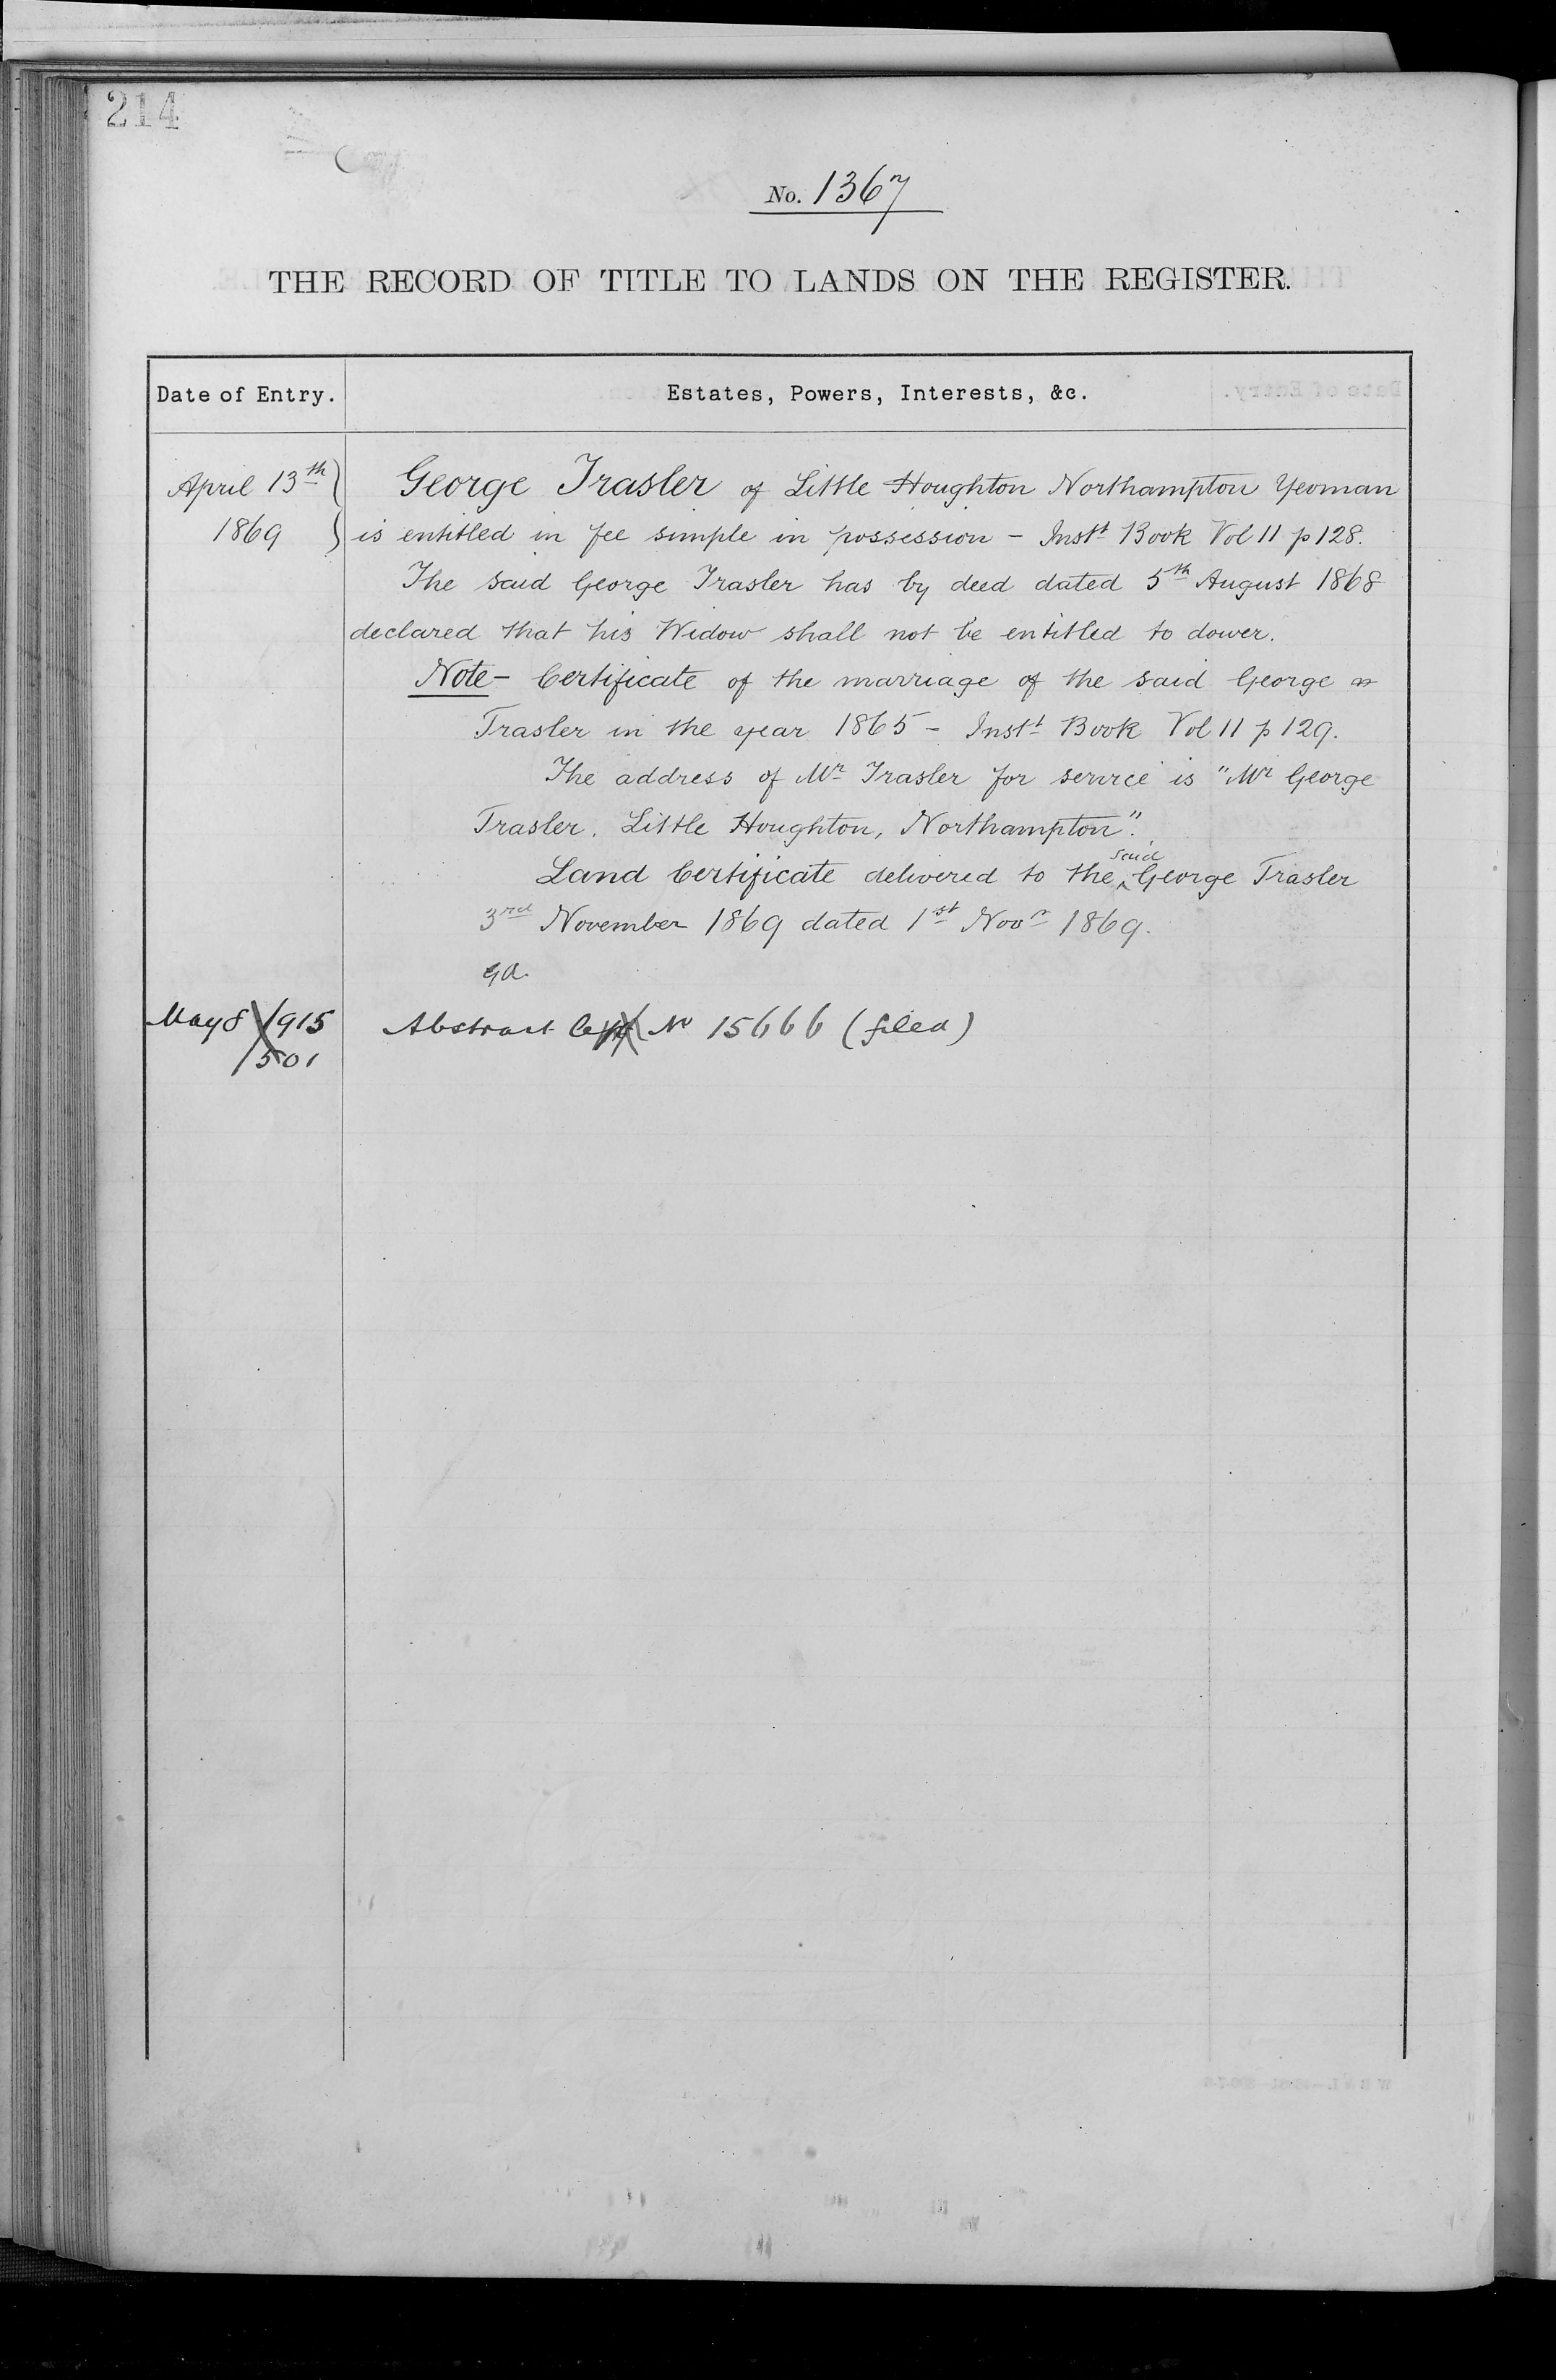 214
No. 1367
THE RECORD OF TITLE TO LANDS ON THE REGISTER.
Date of Entry. Estates, Powers, Interests, &c.
April 13th George Trasler of Little Houghton Northampton Yeoman
1869 is entitled in fee simple in possession - Instt Book Vol 11 p 128.
The said George Trasler has by deed dated 5th August 1868
declared that his Widow shall not be entitled to dower.
Note - Certificate of the marriage of the said George
Trasler in the year 1865 - Instt Book Vol 11 p 129.
The address of Mr Trasler for service is "Mr George
Trasler. Little Houghton, Northampton".
Land Certificate delivered to the said George Trasler
3rd November 1869 dated 1st Novr 1869.
May 8 1915 Abstract No 15666 (filed)
1501